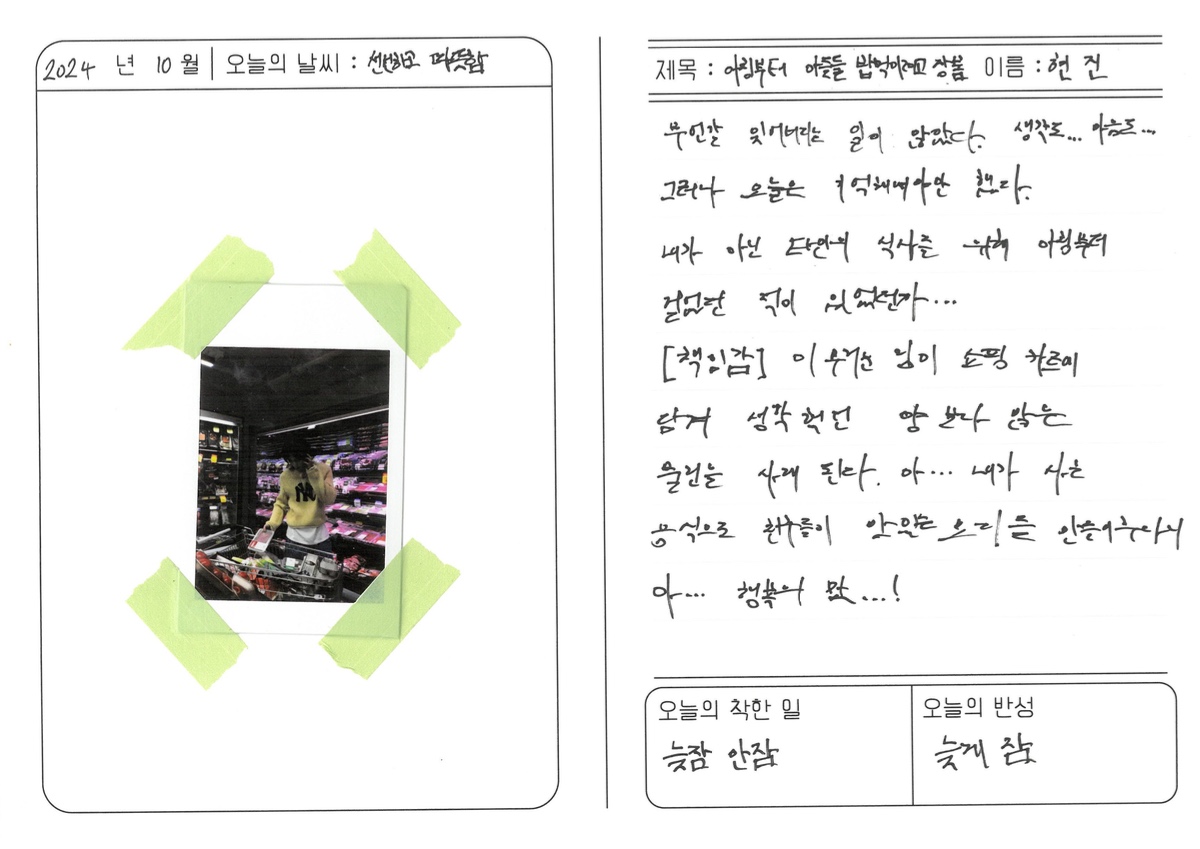 2024 년 10 월 | 오늘의 날씨 : 선선하고 따뜻함
제목 : 아침부터 아줌들 밥먹이려고 장봄 이름 : 현진
무언갈 잊어버리는 일이 많았다. 생각도... 마음도...
그러나 오늘은 기억해내야만 했다.
내가 아닌 타인의 식사를 위해 아침부터
걸었던 적이 있었던가...
[책임감] 이 우러난 님이 쇼핑 카트에
담겨 생각했던 양 보다 많은
물건을 사게 된다. 아... 내가 사온
음식으로 친구들이 맛있는 요리를 만들어주다니
아... 행복의 맛...!
오늘의 착한 일
늦잠 안잠
오늘의 반성
늦게 잠
NY